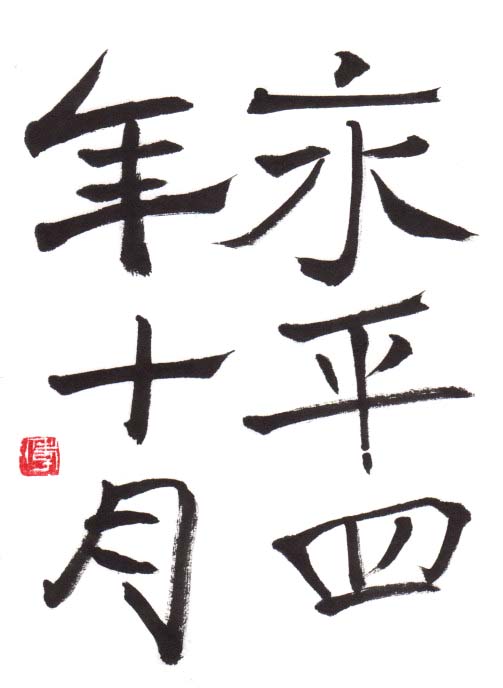 永平四
年十月